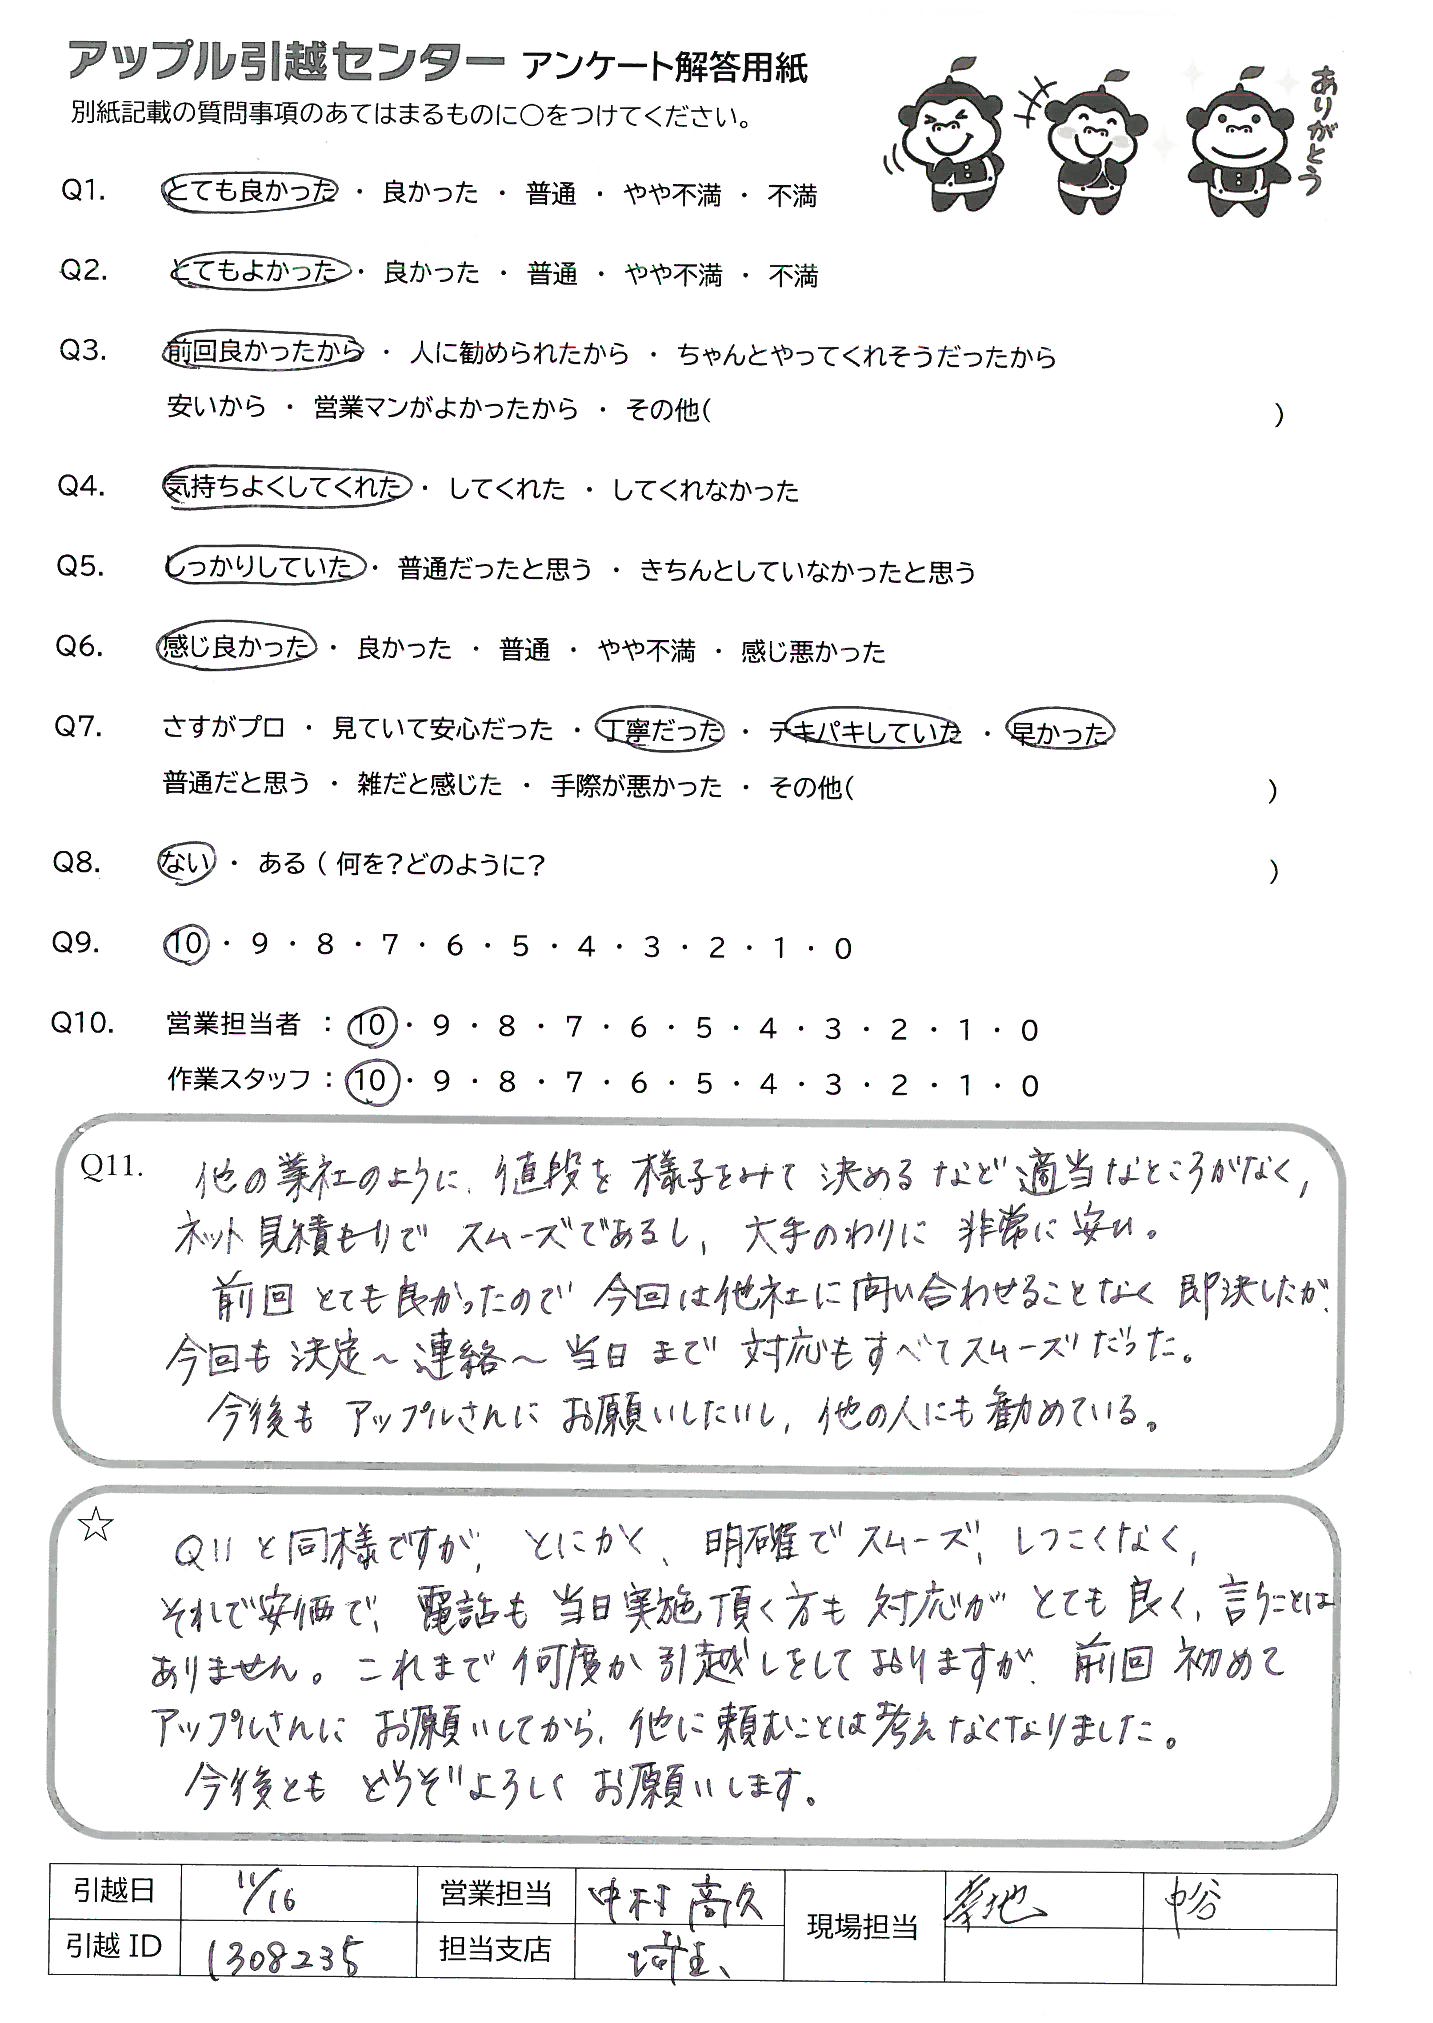 アップル引越センター アンケート解答用紙
別紙記載の質問事項のあてはまるものに〇をつけてください。
ありがとう
Q1. とても良かった ・ 良かった ・ 普通 ・ やや不満 ・ 不満
Q2. とてもよかった ・ 良かった ・ 普通 ・ やや不満 ・ 不満
Q3. 前回良かったから ・ 人に勧められたから ・ ちゃんとやってくれそうだったから
安いから ・ 営業マンがよかったから ・ その他( )
Q4. 気持ちよくしてくれた ・ してくれた ・ してくれなかった
Q5. しっかりしていた ・ 普通だったと思う ・ きちんとしていなかったと思う
Q6. 感じ良かった ・ 良かった ・ 普通 ・ やや不満 ・ 感じ悪かった
Q7. さすがプロ ・ 見ていて安心だった ・ 丁寧だった ・ テキパキしていた ・ 早かった
普通だと思う ・ 雑だと感じた ・ 手際が悪かった ・ その他( )
Q8. ない ・ ある ( 何を?どのように? )
Q9. 10 ・ 9 ・ 8 ・ 7 ・ 6 ・ 5 ・ 4 ・ 3 ・ 2 ・ 1 ・ 0
Q10. 営業担当者 : 10 ・ 9 ・ 8 ・ 7 ・ 6 ・ 5 ・ 4 ・ 3 ・ 2 ・ 1 ・ 0
作業スタッフ : 10 ・ 9 ・ 8 ・ 7 ・ 6 ・ 5 ・ 4 ・ 3 ・ 2 ・ 1 ・ 0
Q11. 他の業社のように、値段を様子をみて決めるなど適当なところがなく,
ネット見積もりでスムーズであるし, 大手のわりに非常に安い。
前回とても良かったので今回は他社に問い合わせることなく即決したが、
今回も決定~連絡~当日まで対応もすべてスムーズだった。
今後もアップルさんにお願いしたいし, 他の人にも勧めている。
☆ Q11と同様ですが, とにかく、明確でスムーズ, しつこくなく,
それで安価で, 電話も当日実施頂く方も対応がとても良く, 言うことは
ありません。これまで何度か引越しをしておりますが、前回初めて
アップルさんにお願いしてから, 他に頼むことは考えなくなりました。
今後ともどうぞよろしくお願いします。
引越日 11/16 営業担当 中村 高久 現場担当 中谷
引越ID 1308235 担当支店 埼玉